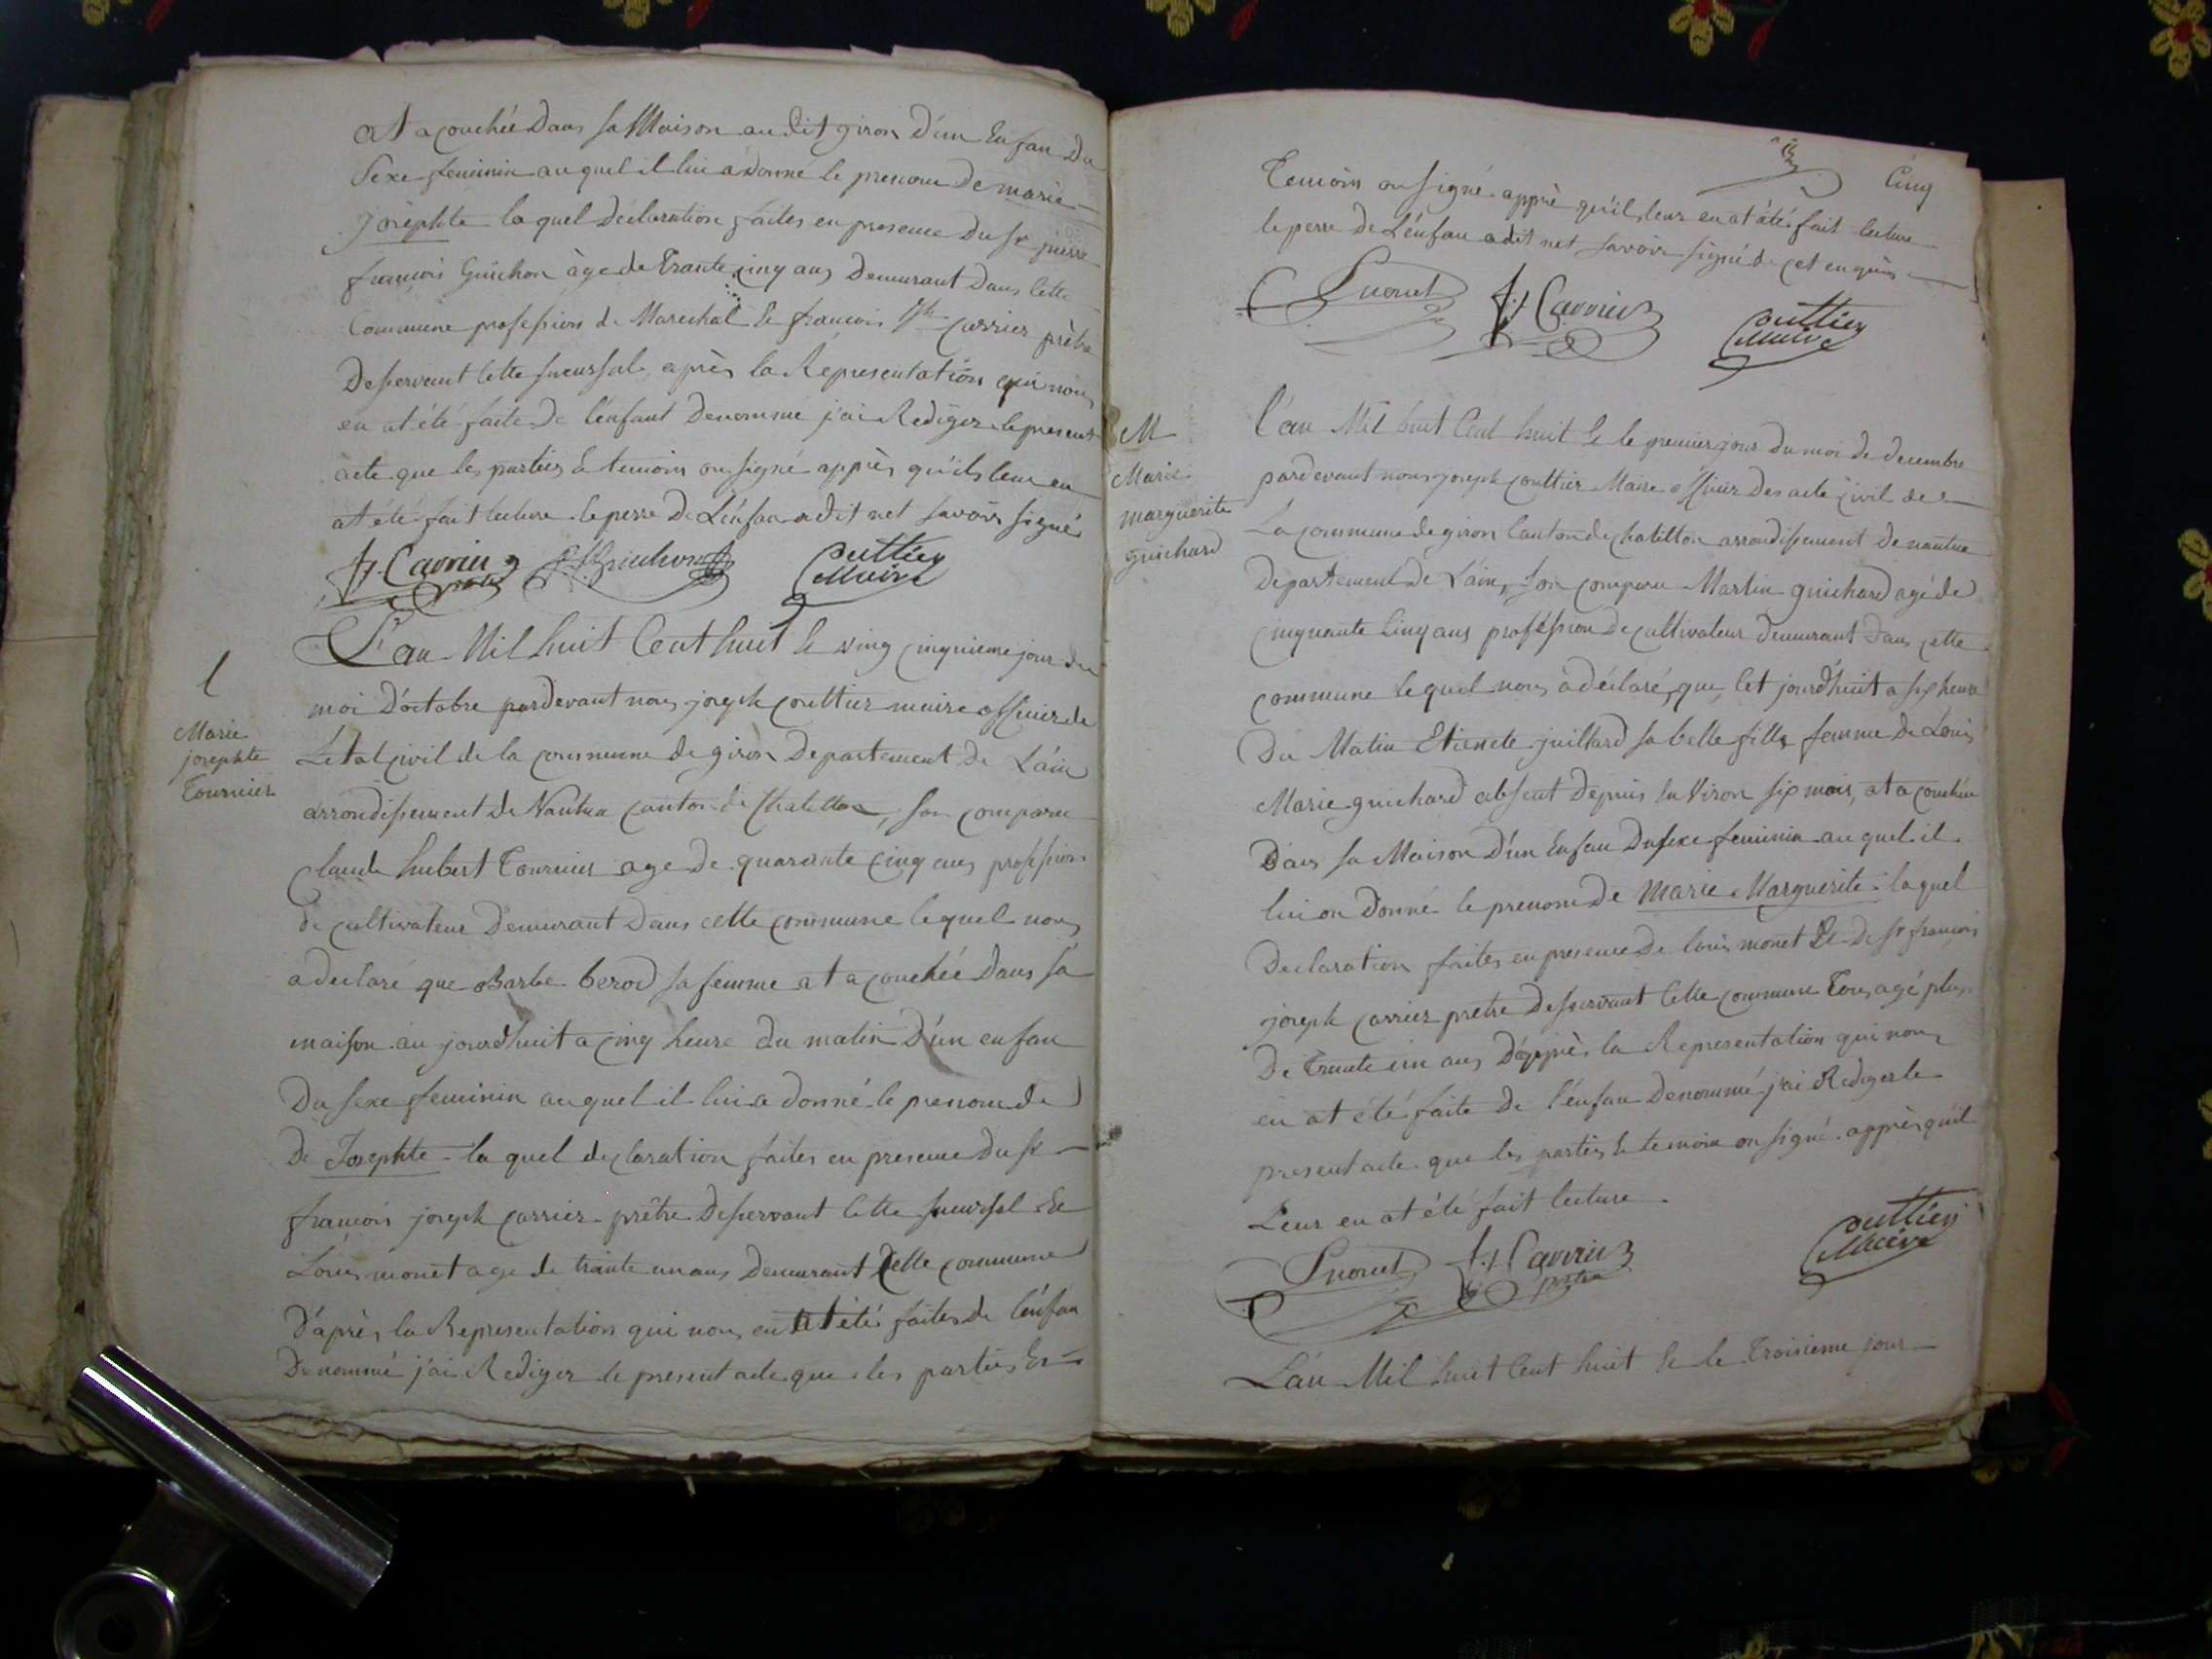 at acouchée Dans sa Maison au dit giron D'un Enfan Du
Sexe feminin au quel il lui a donné le prenom De marie
josephte la quel Déclaration faites en presence Du sr pierre
françois Guichon àge de Trante cinq ans Demurant Dans cette
Commune profession de Marechal Et françois jph carrier prêtre
Desservant Cette sucursale, après la Répresentation qui nous
en at été faite De l'enfant Denommé j'ai Rediger le present
acte que les parties Et temoins on signé apprès qu'ils leur en
at été fait lecture le perre De L'énfan a dit net savoir signé
fj. Carrier prêtre Couttier Maire
L'an Mil huit Cent huit le ving cinquieme jour du
moi D'octobre pardevant nous joseph couttier maire officier de
L'etat civil de la commune de giron Departement De L'ain
arrondissement De Nantua canton de Chatillon, son comparu
claude hubert Tournier age De quarante cinq ans profession
de cultivateur Demurant Dans cette commune lequel nous
a declaré que Barbe berod sa femme at acouchée Dans sa
maison au jourd'huit a cinq heure du matin D'un enfan
Du sexe feminin auquel il lui a donné le prenom de
De Josephte la quel declaration faites en presence Du sr
françois joseph carrier prêtre Desservant Cette sucursal Et
Louis monet age de trante un ans Demurant Cette commune
D'après la Representation qui nous en at été faites de l'énfan
Denommé j'ai Rediger le present acte que les parties Et
l
Marie
josephte
Tournier
Cinq
Temoins on signé apprè qu'il leur en at été fait lecture
le perre De L'énfan a dit net savoir signé de cet enquis
Lmonet fj Carrier Couttier Maire
M
Marie
marguerite
guichard
l'an Mil huit Cent huit Et le premier jour du moi de decembre
pardevant nous joseph couttier Maire officier Des acte civil de
La commune de giron Canton de chatillon arrondissement De nantua
Departement De L'ain, son comparu Martin guichard agé de
cinquante Cinq ans proféssion De cultivateur demurant Dans cette
commune lequel nous à déclaré, que, Cet jourd'huit a six heure
Du Matin Etienete juillard sa belle fille femme De Louis
Marie guichard absent depuis en Viron six mois, at acouchée
Dans sa Maison D'un Enfan Du sexe feminin au quel il
lui on Donné le prenom De Marie Marguerite laquel
Declaration faites en presence De louis monet Et De sr françois
joseph carrier prêtre Desservant Cette commune Tous agé plus
De Trante un ans D'apprès la Representation qui nous
en at été faite De l'énfan Denommé j'ai Rediger le
present acte que les parties Et temoin on signé apprès qu'il
Leur en at été fait lecture.
Lmonet fj Carrier prêtre Couttier Maire
L'án Mil huit Cent huit Et le Troisieme jour